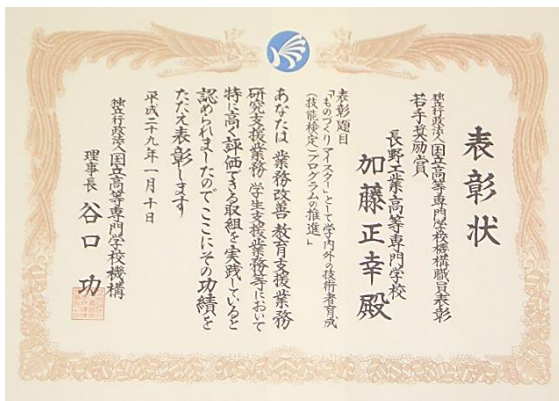 表彰状
独立行政法人国立高等専門学校機構職員表彰
若手奨励賞
長野工業高等専門学校
加藤正幸殿
表彰題目
「ものづくりマイスターとして学内外の技術者育成
(技能検定)プログラムの推進」
あなたは 業務改善 教育支援業務
研究支援業務 学生支援業務等において
特に高く評価できる取組を実践していると
認められましたのでここにその功績を
たたえ表彰します
平成二十九年一月十日
独立行政法人国立高等専門学校機構
理事長 谷口 功